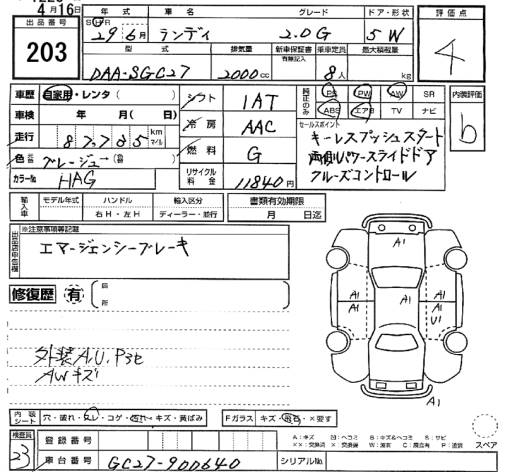 4月16日
出品番号 203
年式 車名 グレード ドア・形状
29年6月 ランディ 2.0G 5W
評価点 4
型式 排気量 新車保証書 有無記入 乗車定員 最大積載量
DAA-SGC27 2000cc 8人 kg
車歴 自家用・レンタ( )
シフト IAT
純正のみ PS PW AW SR
ABS エアB TV ナビ
内装評価 b
車検 年 月 日
冷房 AAC
セールスポイント
キーレスプッシュスタート
両側パワースライドドア
クルーズコントロール
走行 87,785 km マイル
燃料 G
色 グレージュ
カラーNo HAG
リサイクル料金 11840円
輸入車 モデル年式 ハンドル 右H・左H 輸入区分 ディーラー・並行
書類有効期限 月 日迄
出品店申告欄 ※注意事項等記載
エマージェンシーブレーキ
修復歴 有
箇所
A1
A1 A1 A1
A1 A1
U1
A1
外装A,U,Pヨビ
AWキズ
内装シート 穴・破れ・スレ・コゲ・汚れ・キズ・黄ばみ
Fガラス キズ・飛石・×要す
A:キズ
スペア
検査員 23
登録番号
車台番号 GC27-900640
シリアルNo.